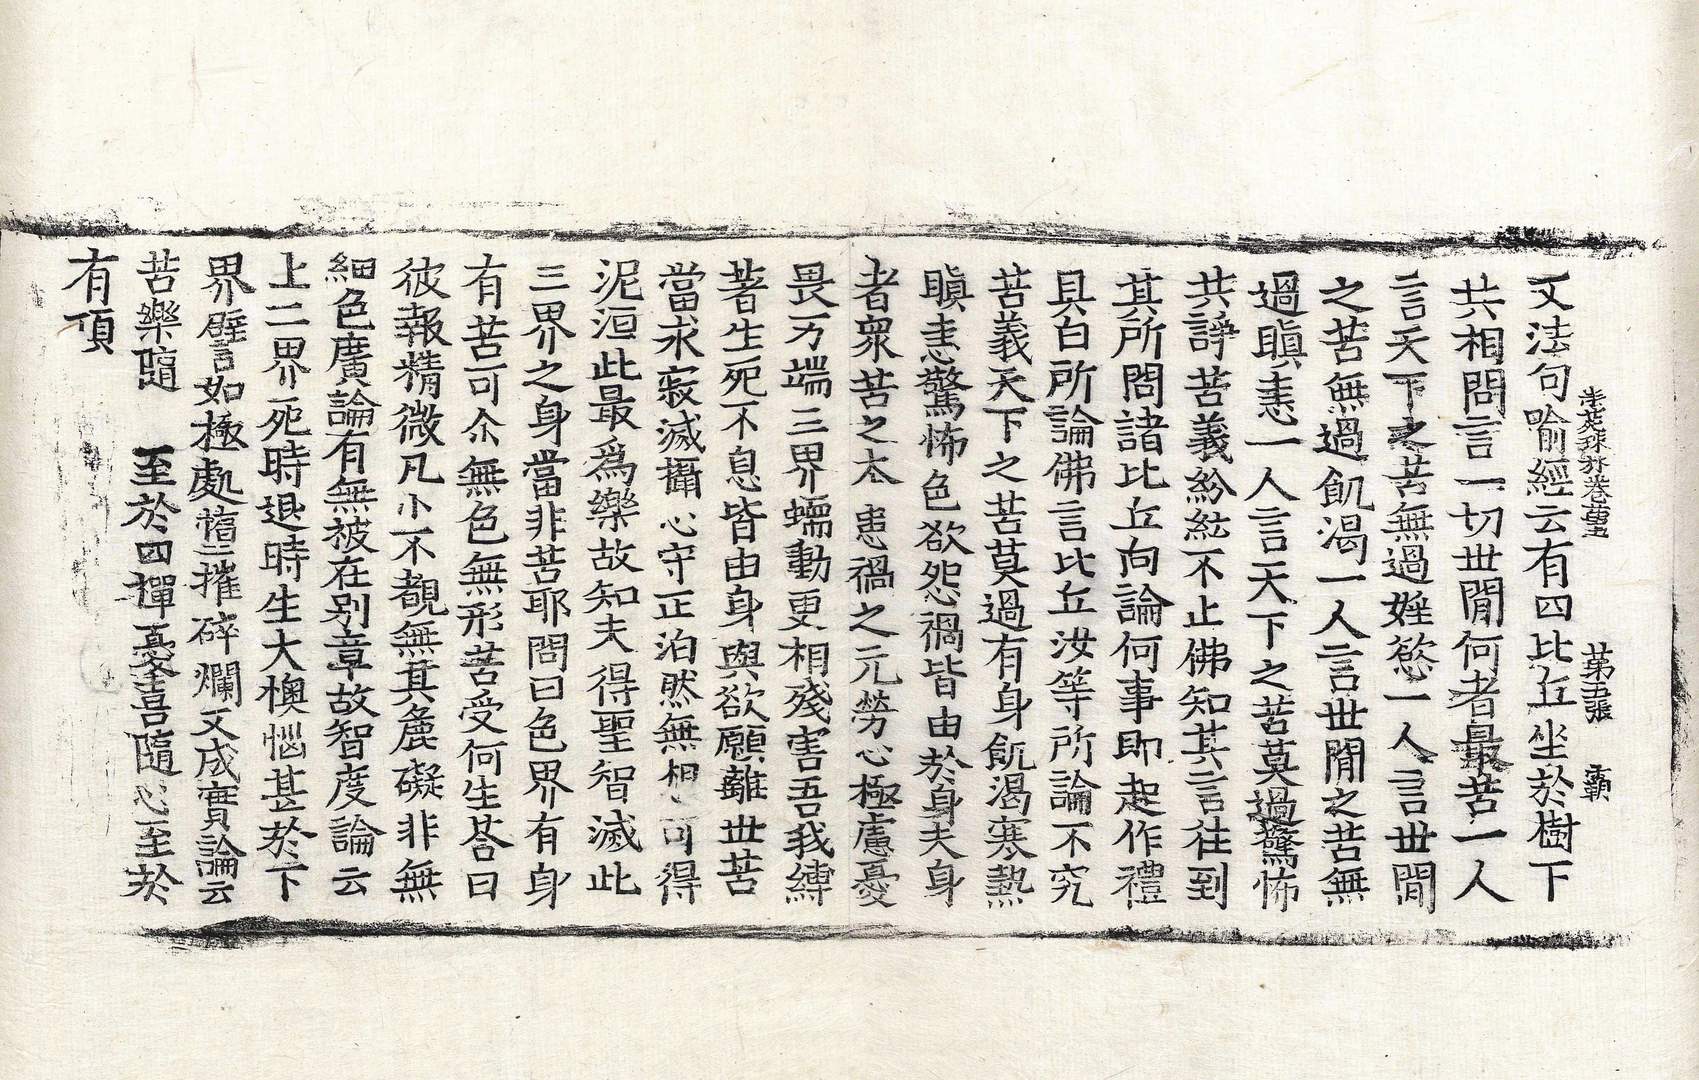 法苑珠林卷 第五張 霸
又法句喻經云有四比丘坐於樹下
共相問言一切世閒何者最苦一人
言天下之苦無過婬慾一人言世閒
之苦無過飢渴一人言世閒之苦無
過瞋恚一人言天下之苦莫過驚怖
共諍苦義紛紜不止佛知其言往到
其所問諸比丘向論何事即起作禮
具白所論佛言比丘汝等所論不究
苦義天下之苦莫過有身飢渴寒熱
瞋恚驚怖色欲怨禍皆由於身夫身
者衆苦之本患禍之元勞心極慮憂
畏万端三界蠕動更相殘害吾我縛
著生死不息皆由身興欲願離世苦
當求寂滅攝心守正泊然無想可得
泥洹此最爲樂故知夫得聖智滅此
三界之身當非苦耶問曰色界有身
有苦可尒無色無形苦受何生荅曰
彼報精微凡小不覩無其麁礙非無
細色廣論有無被在别章故智度論云
上二界死時退時生大懊惱甚於下
界譬如極處墮摧碎爛又成實論云
苦樂隨 至於四禪憂喜隨心至於
有頂